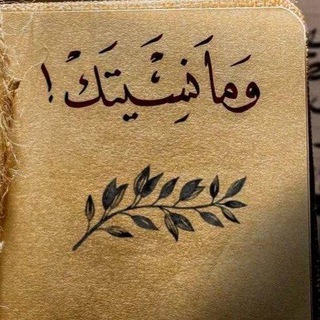 وَمَا نَسِيَتَكْ !